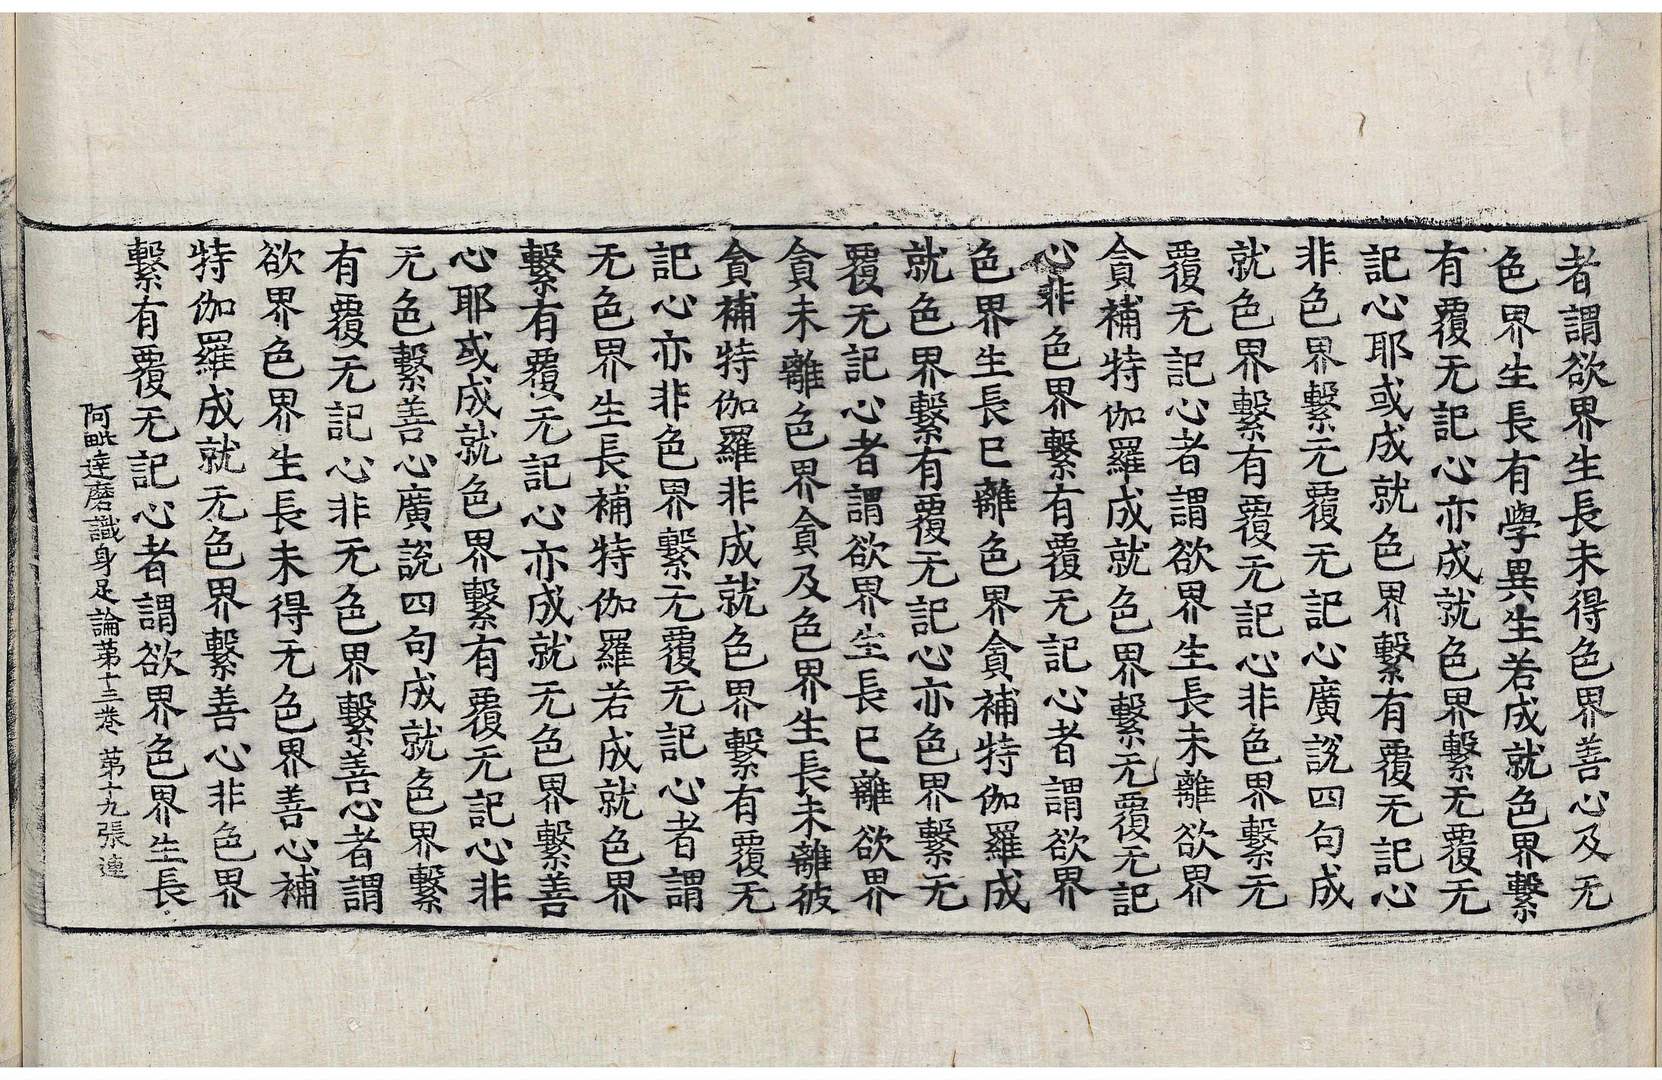 者謂欲界生長未得色界善心及无
色界生長有學異生若成就色界繫
有覆无記心亦成就色界繫无覆无
記心耶或成就色界繫有覆无記心
非色界繫无覆无記心廣說四句成
就色界繫有覆无記心非色界繫无
覆无記心者謂欲界生長未離欲界
貪補特伽羅成就色界繫无覆无記
心非色界繫有覆无記心者謂欲界
色界生長已離色界貪補特伽羅成
就色界繫有覆无記心亦色界繫无
覆无記心者謂欲界生長已離欲界
貪未離色界貪及色界生長未離彼
貪補特伽羅非成就色界繫有覆无
記心亦非色界繫无覆无記心者謂
无色界生長補特伽羅若成就色界
繫有覆无記心亦成就无色界繫善
心耶或成就色界繫有覆无記心非
无色繫善心廣說四句成就色界繫
有覆无記心非无色界繫善心者謂
欲界色界生長未得无色界善心補
特伽羅成就无色界繫善心非色界
繫有覆无記心者謂欲界色界生長
阿毗達磨識身足論苐十三卷 苐十九張 連